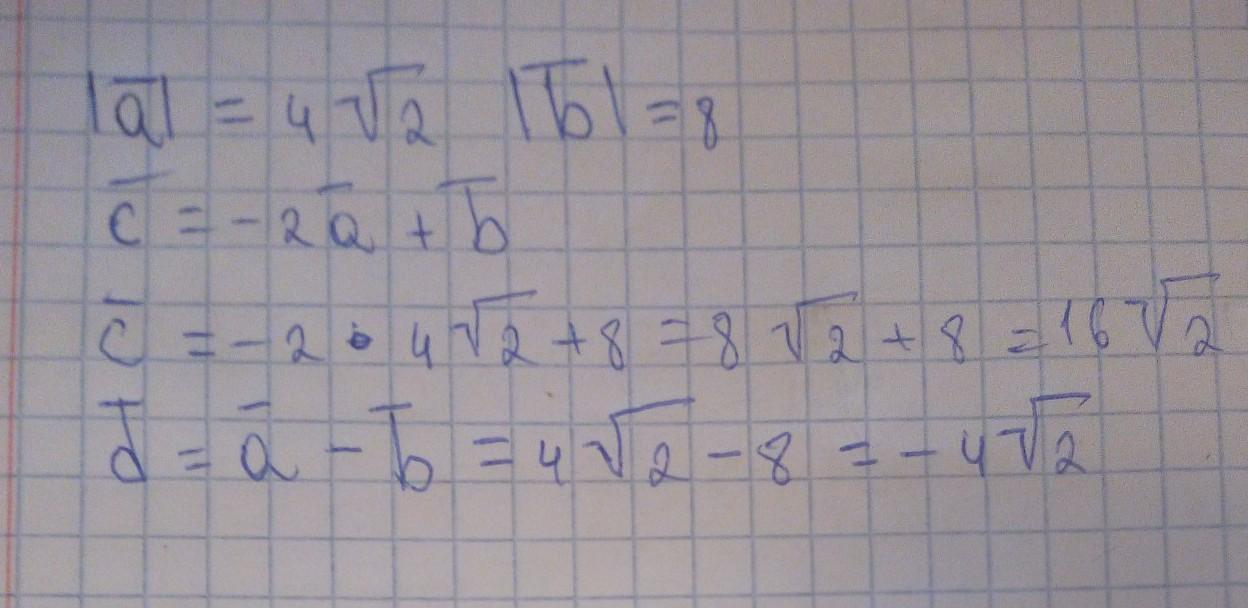 |a̅| = 4√2 |b̅| = 8
c̅ = -2a̅ + b̅
c̅ = -2 • 4√2 + 8 = 8√2 + 8 = 16√2
d̅ = a̅ - b̅ = 4√2 - 8 = -4√2